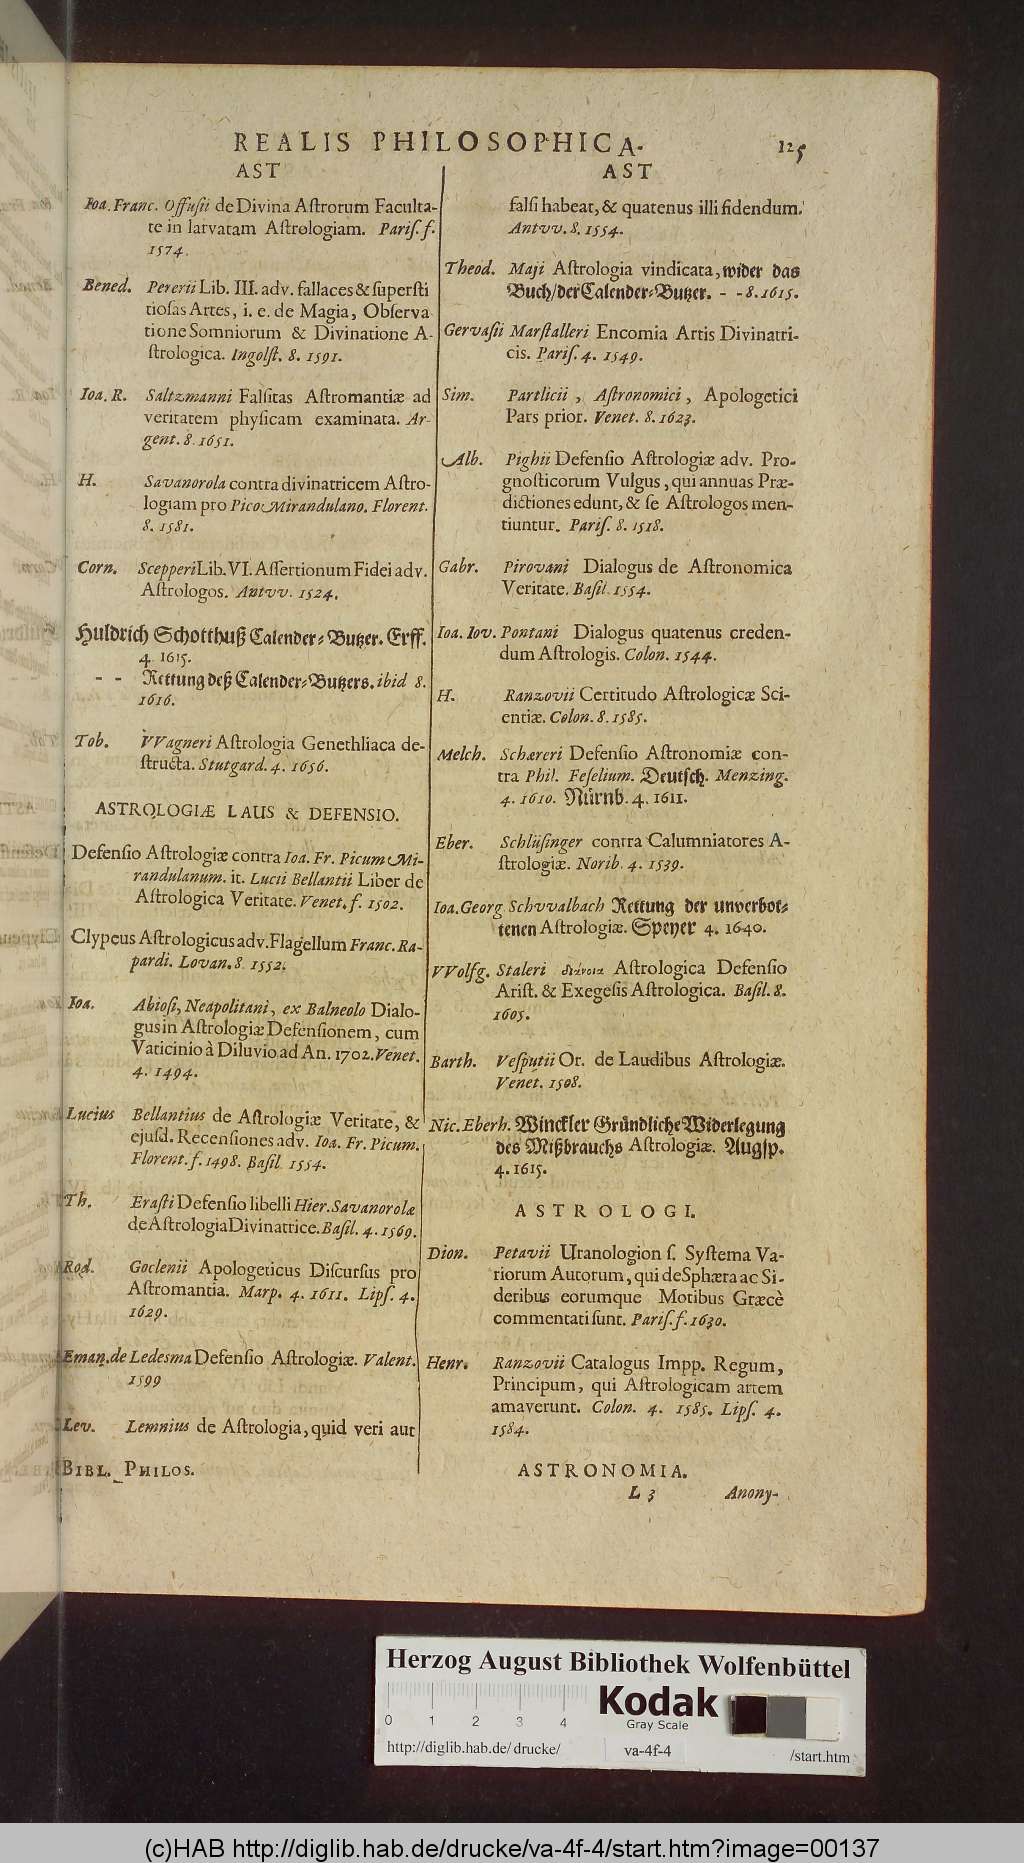 REALIS PHILOSOPHICA.
125
AST
Ioa. Franc. Offusii de Divina Astrorum Faculta-
te in larvatam Astrologiam. Paris. f.
1574.
Bened. Pererii Lib. III. adv. fallaces & supersti
tiosas Artes, i. e. de Magia, Observa
tione Somniorum & Divinatione A-
strologica. Ingolst. 8. 1591.
Ioa. R. Saltzmanni Falsitas Astromantiæ ad
veritatem physicam examinata. Ar-
gent. 8. 1651.
H. Savanorola contra divinatricem Astro-
logiam pro Pico Mirandulano. Florent.
8. 1581.
Corn. Scepperi Lib. VI. Assertionum Fidei adv.
Astrologos. Antvv. 1524.
Huldrich Schotthuß Calender-Butzer. Erff.
4. 1615.
- - Rettung deß Calender-Butzers. ibid 8.
1616.
Tob. VVagneri Astrologia Genethliaca de-
structa. Stutgard. 4. 1656.
ASTROLOGIÆ LAUS & DEFENSIO.
Defensio Astrologiæ contra Ioa. Fr. Picum Mi-
randulanum. it. Lucii Bellantii Liber de
Astrologica Veritate. Venet. f. 1502.
Clypeus Astrologicus adv. Flagellum Franc. Ra-
pardi. Lovan. 8. 1552.
Ioa. Abiosi, Neapolitani, ex Balneolo Dialo-
gus in Astrologiæ Defensionem, cum
Vaticinio à Diluvio ad An. 1702. Venet.
4. 1494.
Lucius Bellantius de Astrologiæ Veritate, &
ejusd. Recensiones adv. Ioa. Fr. Picum.
Florent. f. 1498. Basil. 1554.
Th. Erasti Defensio libelli Hier. Savanorolæ
de Astrologia Divinatrice. Basil. 4. 1569.
Rod. Goclenii Apologeticus Discursus pro
Astromantia. Marp. 4. 1611. Lips. 4.
1629.
Eman. de Ledesma Defensio Astrologiæ. Valent.
1599
Lev. Lemnius de Astrologia, quid veri aut
BIBL. PHILOS.
AST
falsi habeat, & quatenus illi fidendum.
Antvv. 8. 1554.
Theod. Maji Astrologia vindicata, wider das
Buch/der Calender-Butzer. - - 8. 1615.
Gervasii Marstalleri Encomia Artis Divinatri-
cis. Paris. 4. 1549.
Sim. Partlicii, Astronomici, Apologetici
Pars prior. Venet. 8. 1623.
Alb. Pighii Defensio Astrologiæ adv. Pro-
gnosticorum Vulgus, qui annuas Præ-
dictiones edunt, & se Astrologos men-
tiuntur. Paris. 8. 1518.
Gabr. Pirovani Dialogus de Astronomica
Veritate. Basil. 1554.
Ioa. Iov. Pontani Dialogus quatenus creden-
dum Astrologis. Colon. 1544.
H. Ranzovii Certitudo Astrologicæ Sci-
entiæ. Colon. 8. 1585.
Melch. Schæreri Defensio Astronomiæ con-
tra Phil. Feselium. Deutsch. Menzing.
4. 1610. Nürnb. 4. 1611.
Eber. Schlüsinger contra Calumniatores A-
strologiæ. Norib. 4. 1539.
Ioa. Georg Schvvalbach Rettung der unverbot-
tenen Astrologiæ. Speyer 4. 1640.
VVolfg. Staleri διάνοια Astrologica Defensio
Arist. & Exegesis Astrologica. Basil. 8.
1605.
Barth. Vesputii Or. de Laudibus Astrologiæ.
Venet. 1508.
Nic. Eberh. Winckler Gründliche Widerlegung
des Mißbrauchs Astrologiæ. Augsp.
4. 1615.
ASTROLOGI.
Dion. Petavii Uranologion s. Systema Va-
riorum Autorum, qui de Sphæra ac Si-
deribus eorumque Motibus Græcè
commentati sunt. Paris. f. 1630.
Henr. Ranzovii Catalogus Impp. Regum,
Principum, qui Astrologicam artem
amaverunt. Colon. 4. 1585. Lips. 4.
1584.
ASTRONOMIA.
L 3 Anony-
Herzog August Bibliothek Wolfenbüttel
0 1 2 3 4
Kodak
Gray Scale
http://diglib.hab.de/drucke/ va-4f-4 /start.htm
(c)HAB http://diglib.hab.de/drucke/va-4f-4/start.htm?image=00137